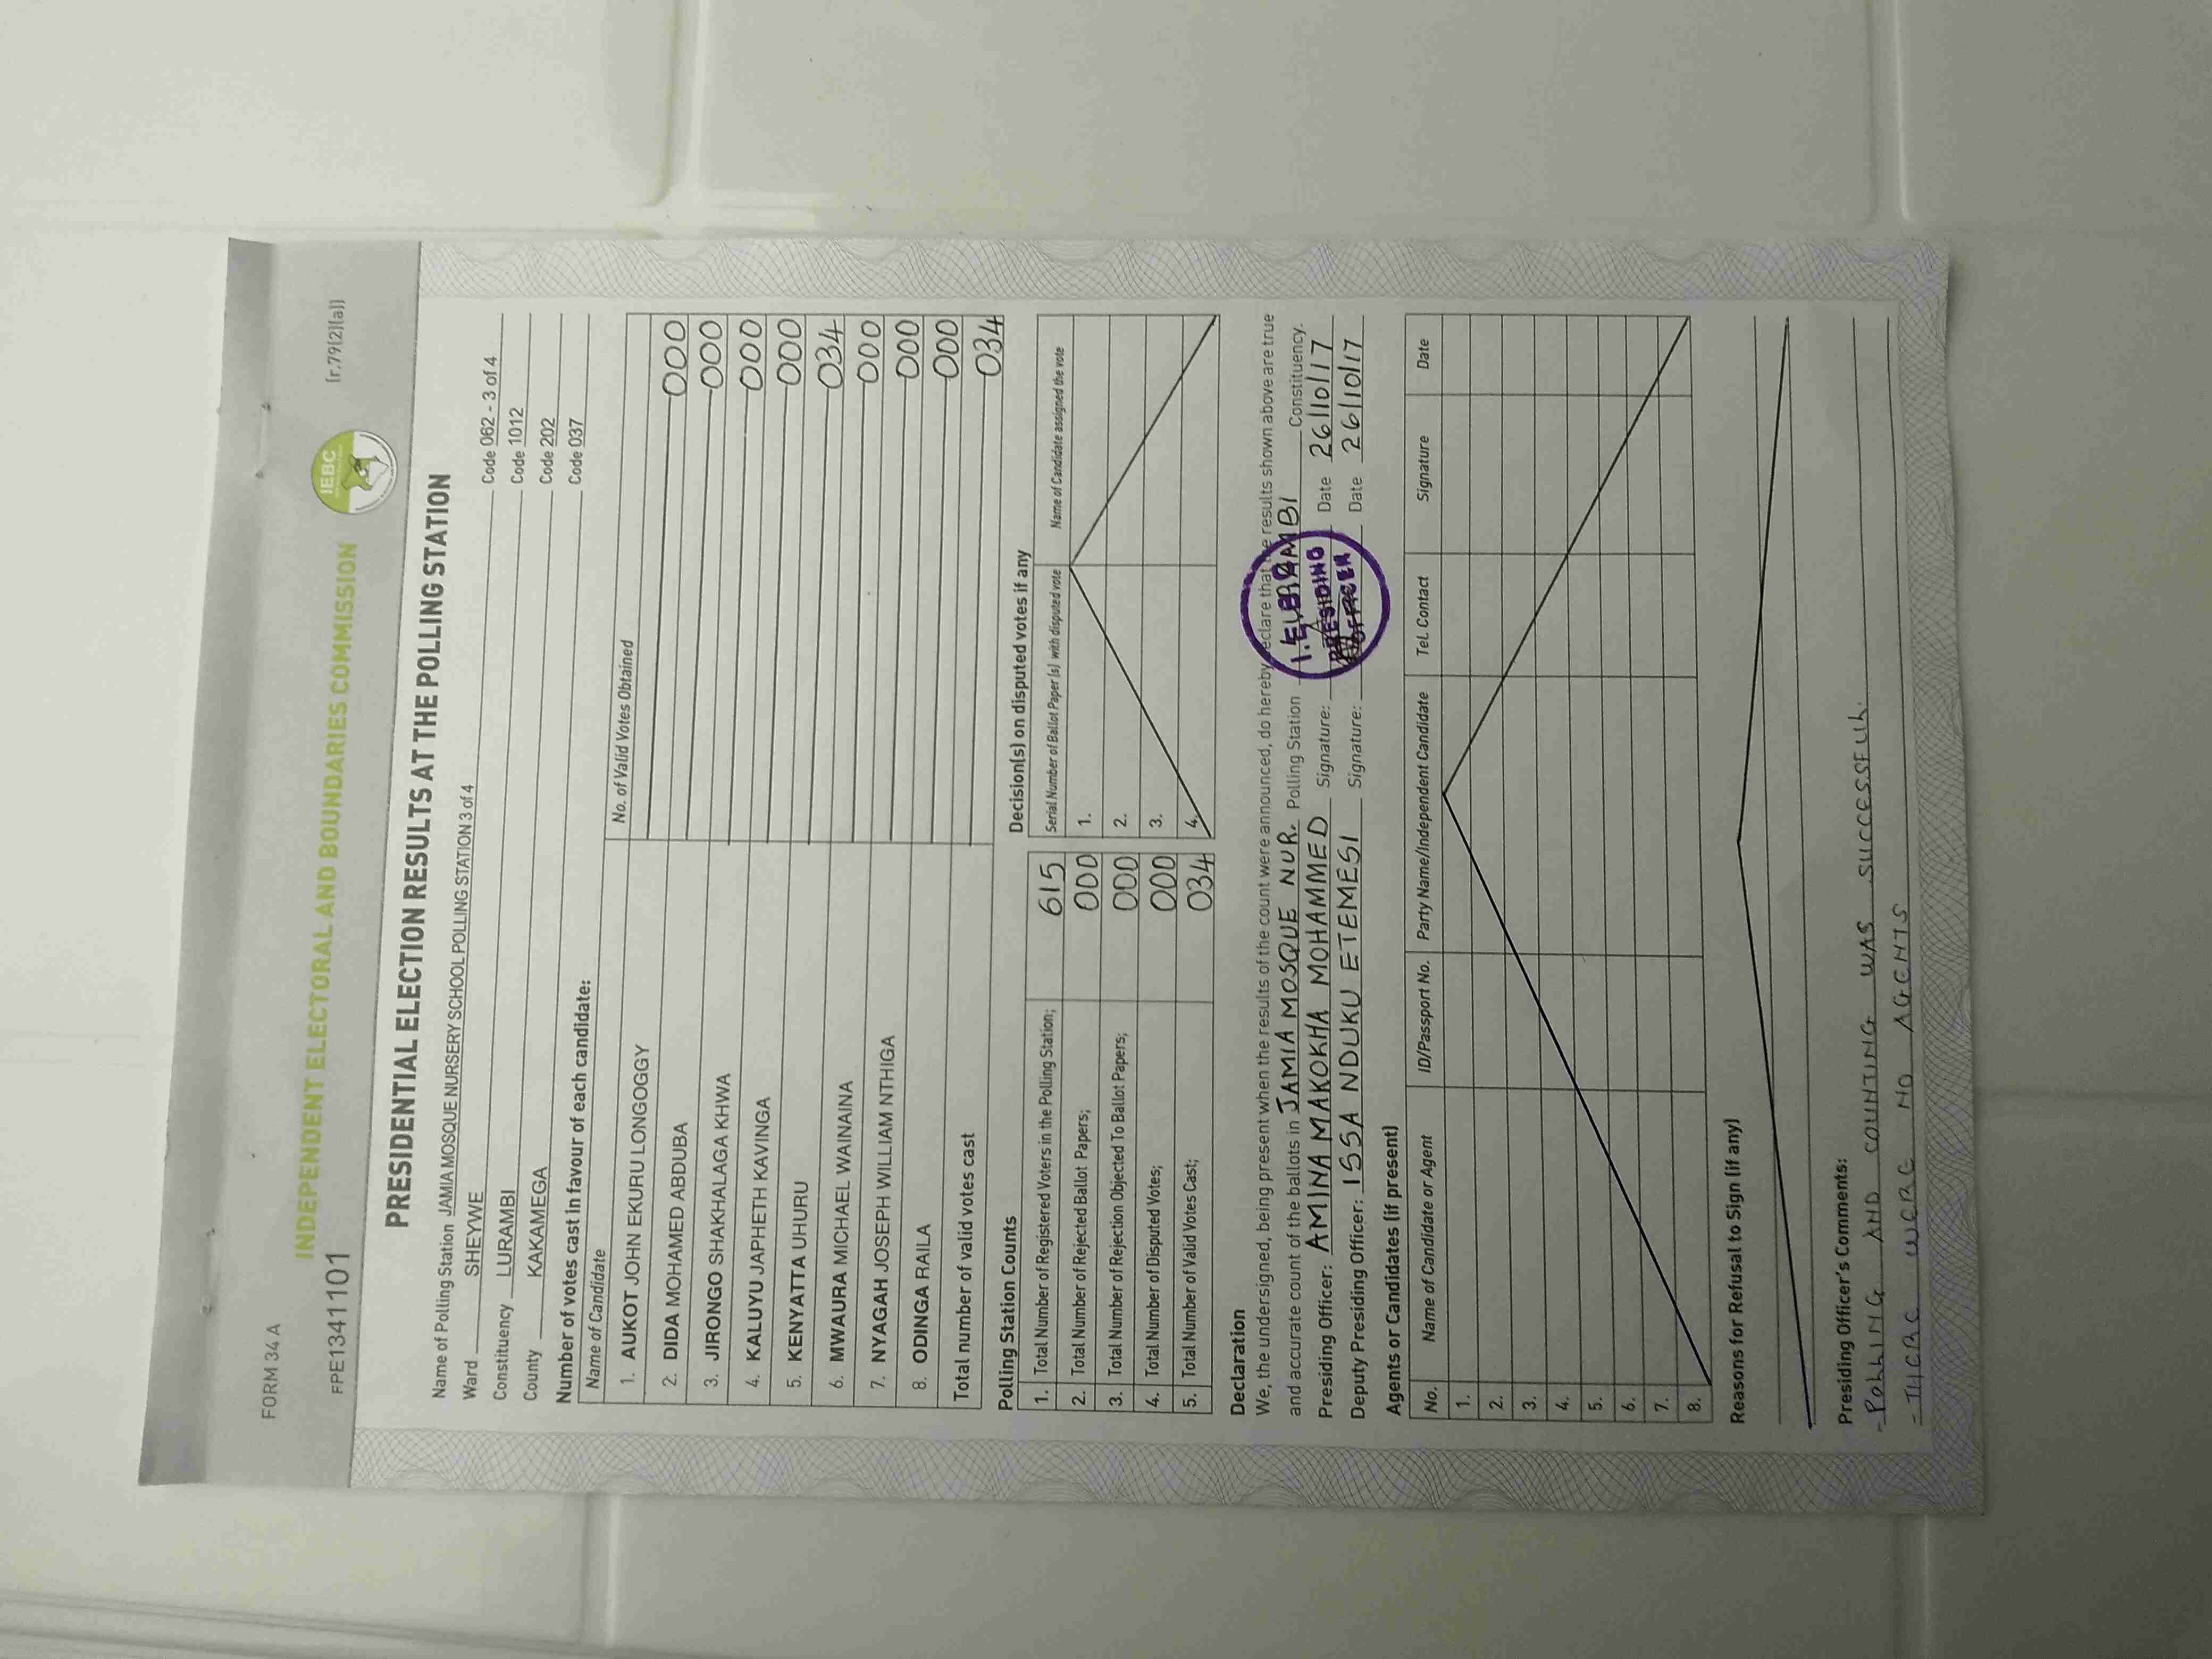 FORM 34 A
FPE1341101
[r.79(2)(a)]
INDEPENDENT ELECTORAL AND BOUNDARIES COMMISSION
IEBC
PRESIDENTIAL ELECTION RESULTS AT THE POLLING STATION
Name of Polling Station JAMIA MOSQUE NURSERY SCHOOL POLLING STATION 3 of 4 Code 062 - 3 of 4
Ward SHEYWE Code 1012
Constituency LURAMBI Code 202
County KAKAMEGA Code 037
Number of votes cast in favour of each candidate:
Name of Candidate No. of Valid Votes Obtained
1. AUKOT JOHN EKURU LONGOGGY 000
2. DIDA MOHAMED ABDUBA 000
3. JIRONGO SHAKHALAGA KHWA 000
4. KALUYU JAPHETH KAVINGA 000
5. KENYATTA UHURU 034
6. MWAURA MICHAEL WAINAINA 000
7. NYAGAH JOSEPH WILLIAM NTHIGA 000
8. ODINGA RAILA 000
Total number of valid votes cast 034
Polling Station Counts
1. Total Number of Registered Voters in the Polling Station; 615
2. Total Number of Rejected Ballot Papers; 000
3. Total Number of Rejection Objected To Ballot Papers; 000
4. Total Number of Disputed Votes; 000
5. Total Number of Valid Votes Cast; 034
Decision(s) on disputed votes if any
Serial Number of Ballot Paper (s) with disputed vote Name of Candidate assigned the vote
1.
2.
3.
4.
Declaration
We, the undersigned, being present when the results of the count were announced, do hereby declare that the results shown above are true
and accurate count of the ballots in JAMIA MOSQUE NUR. Polling Station LURAMBI Constituency.
Presiding Officer: AMINA MAKOKHA MOHAMMED Signature: Date 26/10/17
Deputy Presiding Officer: ISSA NDUKU ETEMESI Signature: Date 26/10/17
I.E.B.C
PRESIDING
OFFICER
Agents or Candidates (if present)
No. Name of Candidate or Agent ID/Passport No. Party Name/Independent Candidate Tel. Contact Signature Date
1.
2.
3.
4.
5.
6.
7.
8.
Reasons for Refusal to Sign (if any)
Presiding Officer's Comments:
- POLLING AND COUNTING WAS SUCCESSFUL.
- THERE WERE NO AGENTS